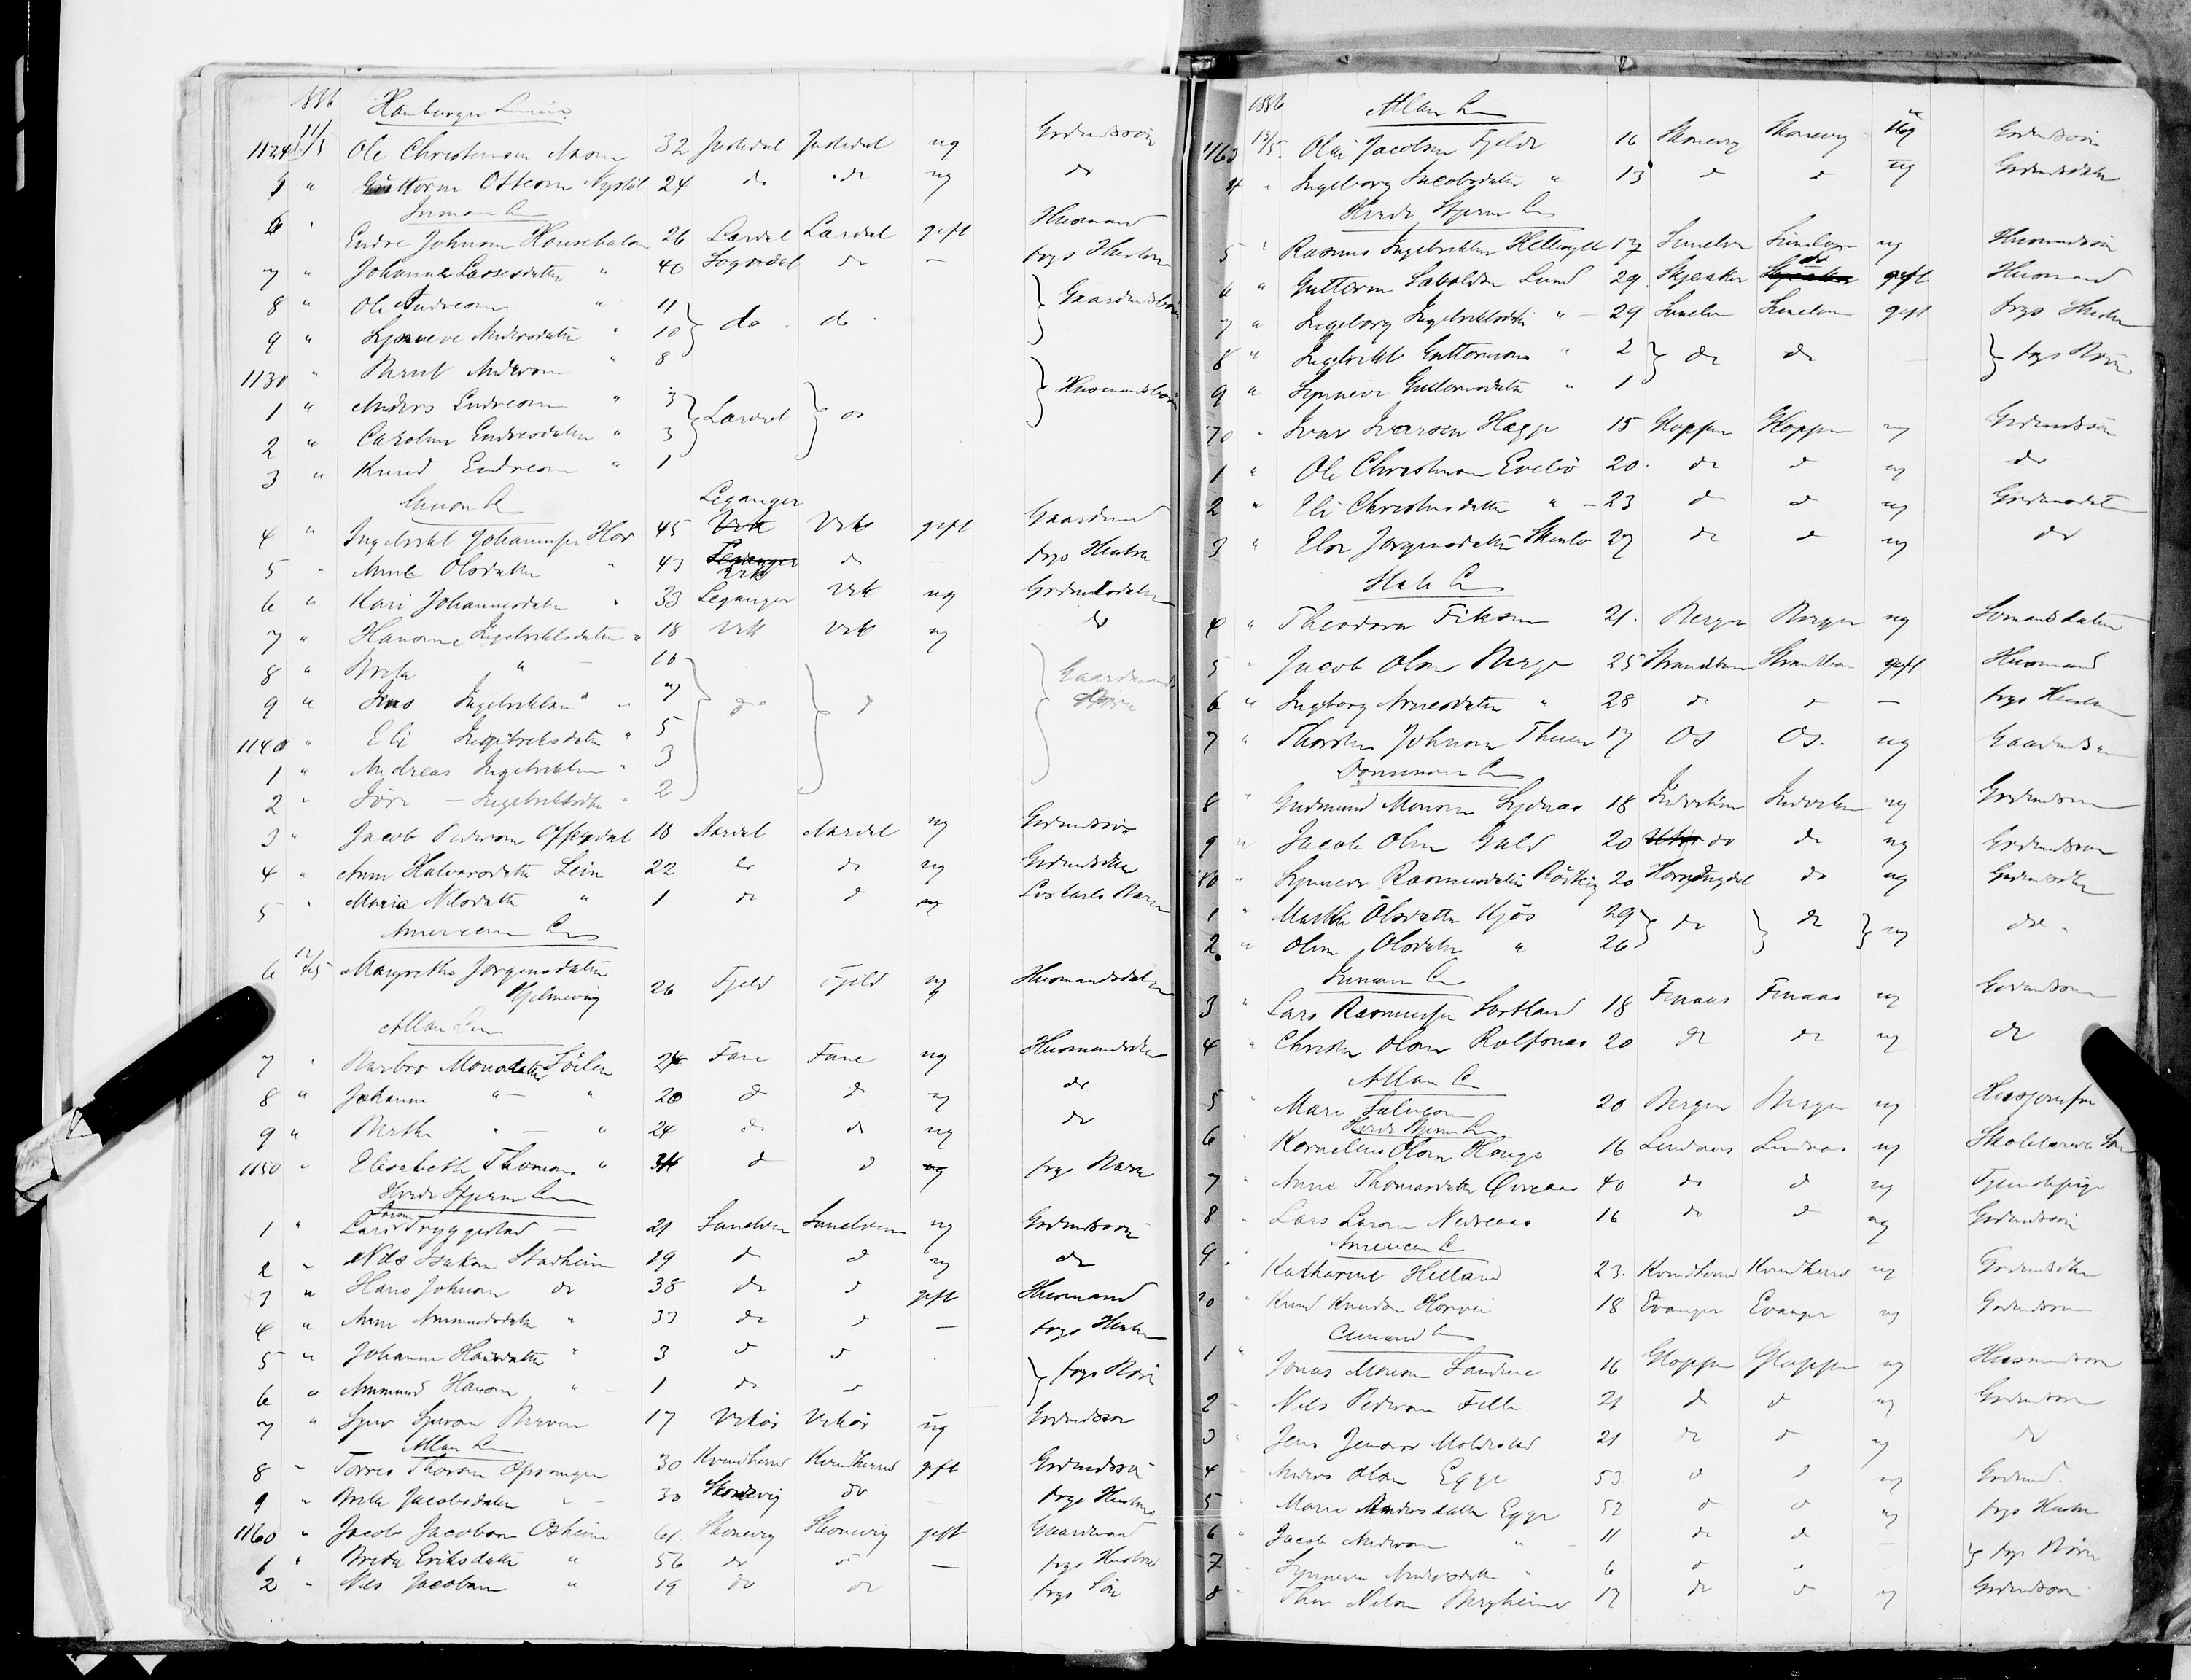 1886 Hamburger Linie
1124 11/5 Ole Christensen 32 Justedal Justedal ug Grdmdssön
5 " Guttorm Ottesen Nystöl 24 do do ug do
Inman L
6 " Endre Johnsen 26 Lærdal Lærdal gift Husmand
7 " Johanne Lassesdatter " 40 Sogndal do — frgs Hustru
8 " Ole Andersen " 11 } do do } Gaardmdsbörn
9 " Synneve Andersdatter " 10
1130 " Bernt Andersen " 8
1 " Anders Endresen " 3 } Lærdal } do } Husmandsbörn
2 " Caroline Endresdatter " 3
3 " Knud Endresen " 1
Cunard L
Leganger
4 " Ingebrikt Johannesen Hov 45 Vik Vik gift Gaardmd
5 " Anne Olsdatter " 43 Leganger Vik do frgs Hustru
6 " Kari Johannesdatter " 33 Leganger Vik ug Grdmdsdatter
7 " Hansine Ingebriktsdatter " 18 Vik Vik ug do
8 " Brita " — 10 } do } do } Gaardmands Börn
9 " Jens Ingebriktsen " 7
1140 " Eli Ingebriktsdatter " 5
1 " Andreas Ingebriktsen " 3
2 " Söre — Ingebriktsdtr " 2
3 " Jacob Pedersen Offerdal 18 Aardal Aardal ug Grdmdssön
4 " Anne Halvorsdatter Lein 22 do do ug Grdmdsdtr
5 " Maria Nilsdatter " 1 do do ug Barn
American L
6 12/5 Margrethe Jørgensdatter
26 Fjeld Fjeld ug Husmandsdatter
Allan Linie
7 " Barbro Monsdatter 24 Fane Fane ug Husmandsdtr
8 " Johanne " — " 20 do do ug do
9 " Brithe " — " 24 do do ug do
1150 " Elisabeth Thomas " 3/4 do do ug frgs Barn
Hvide Stjerne Linie
1 " Lars Larsen Tryggestad — 21 Sunelven Sunelven ug Grdmdssön
2 " Nils Isaksen Stadheim 19 do do ug do
3 " Hans Johnsen do 38 do do gift Husmand
4 " Anne Ammundsdatter " 33 do do — frgs Hustru
5 " Johanne Hansdatter " 3 do do } frgs Börn
6 " Ammund Hansen " — 1 do do
7 " Sjur Sjursen 17 Vikör Vikör ug Grdmdssön
Allan L
8 " Torres Thorsen Opsanger 30 Kvindherred Kvindherred gift Grdmdssön
9 " Brita Jacobsdatter " — 30 Skonevig do — frgs Hustru
1160 " Jacob Jacobsen 61 Skonevig Skonevig gift Gaardmand
1 " Brita Eriksdatter " 56 do do — frgs Hustru
2 " Nils Jacobsen " 19 do do frgs Sön
1886 Allan L
1163 12/5 Olai Jacobsen Fjelde 16 Skonevig Skonevig ug Grdmdssön
4 " Ingeborg Jacobsdatter " 13 do do ug Grdmdsdatter
Hvide Stjerne L
5 " Rasmus Ingebrektsen Hellesylt 17 Sunelven Sunelven ug Husmandssön
6 " Guttorm Lund 29 Skjeaker do gift Husmand
7 " Ingeborg Ingebrektsdtr " — 29 Sunelven Sunelven gift frgs Hustru
8 " Ingebrikt Guttormsen " 2 } do do — } frgs Börn
9 " Synneve Guttormsdatter " 1
70 " Ivar Iversen Hegge 15 Gloppen Gloppen ug Grdmdssön
1 " Ole Christensen Evebö 20 do do ug do
2 " Eli Christensdatter " — 23 do do ug Grdmdsdatter
3 " Elen Jørgensdatter 27 do do ug do
State L
4 " Theodora Eriksen 21 Bergen Bergen ug Sömandsdatter
5 " Jacob Olsen Berge 25 Strandebarm Strandebarm gift Husmand
6 " Ingeborg Arnesdatter " 28 do do — frgs Hustru
7 " Thorsten Johnsen Thuen 17 Os Os ug Gaardmdssön
Dominion L
8 " Gudmund Monsen 18 Indviken Indviken ug Grdmdssön
9 " Jacob Olsen Gald 20 do do ug Grdmdssön
80 " Synneve Rasmusdatter 20 Hornindal do ug Grdmdsdtr
1 " Marthe Olsdatter Kjös 29 } do } do } ug do
2 " Oline Olsdatter " 26
Inman L
3 " Lars Rasmussen Sortland 18 Finaas Finaas ug Grdmdssön
4 " Christen Olsen Rolfsnes 20 do do ug do
Allan L
5 " Marie 20 Bergen Bergen ug Husjomfru
Hvide Stjerne L
6 " Kornelius Olsen Hauge 16 Lindaas Lindaas ug Skolelærers Sön
7 " Anne Thomasdatter 40 do do ug Tjenestepige
8 " Lars Larsen Nedreaas 16 do do ug Grdmdssön
American L
9 " Katharine Helland 23 Kvindherred Kvindherred ug Grdmdsdtr
90 " Knud Knudsen Horvei 18 Evanger Evanger ug Grdmdssön
Cunard L
1 " Jonas Monsen Sandene 16 Gloppen Gloppen ug Husmandssön
2 " Nils Pedersen 21 do do ug Grdmdssön
3 " Jens Jensen Moldestad 21 do do ug do
4 " Anders Olsen Egge 53 do do ug Grdmand
5 " Marie Andersdatter Egge 52 do do ug frgs Hustru
6 " Jacob Andersen " — 11 do do — } frgs Börn
7 " Synneve Andersdatter " 6 do do
8 " Thor Nilsen Bergheim 17 do do ug Grdmdssön